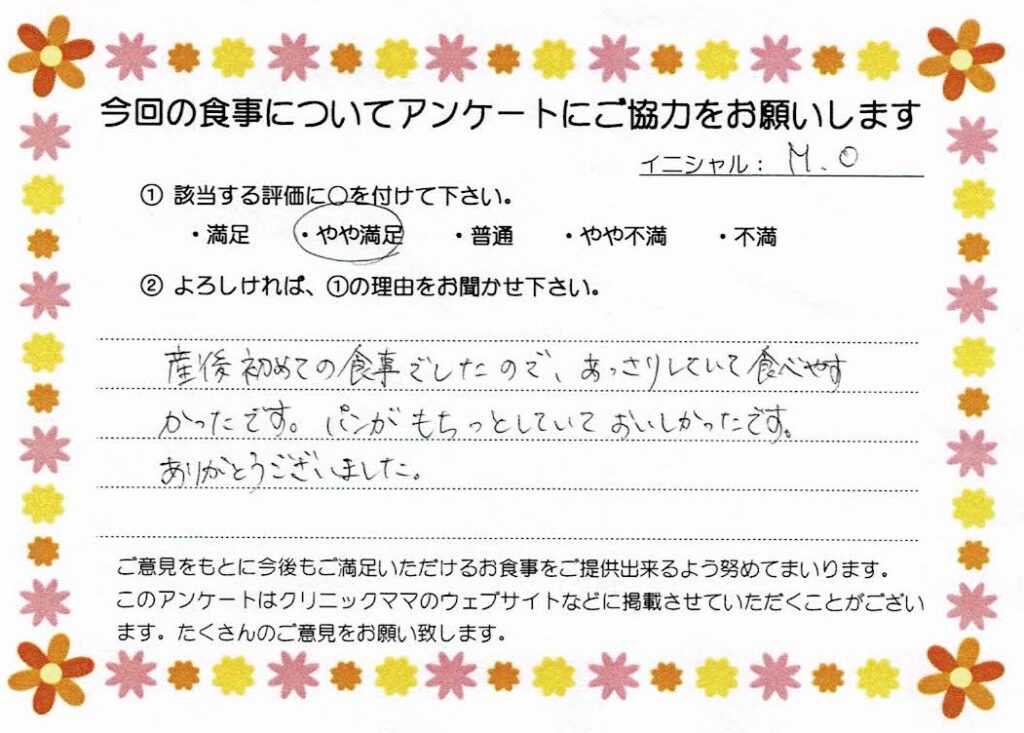 今回の食事についてアンケートにご協力をお願いします
イニシャル： M.O
① 該当する評価に○を付けて下さい。
・満足 ・やや満足 ・普通 ・やや不満 ・不満
② よろしければ、①の理由をお聞かせ下さい。
産後初めての食事でしたので、あっさりしていて食べやす
かったです。パンがもちっとしていておいしかったです。
ありがとうございました。
ご意見をもとに今後もご満足いただけるお食事をご提供出来るよう努めてまいります。
このアンケートはクリニックママのウェブサイトなどに掲載させていただくことがござい
ます。たくさんのご意見をお願い致します。